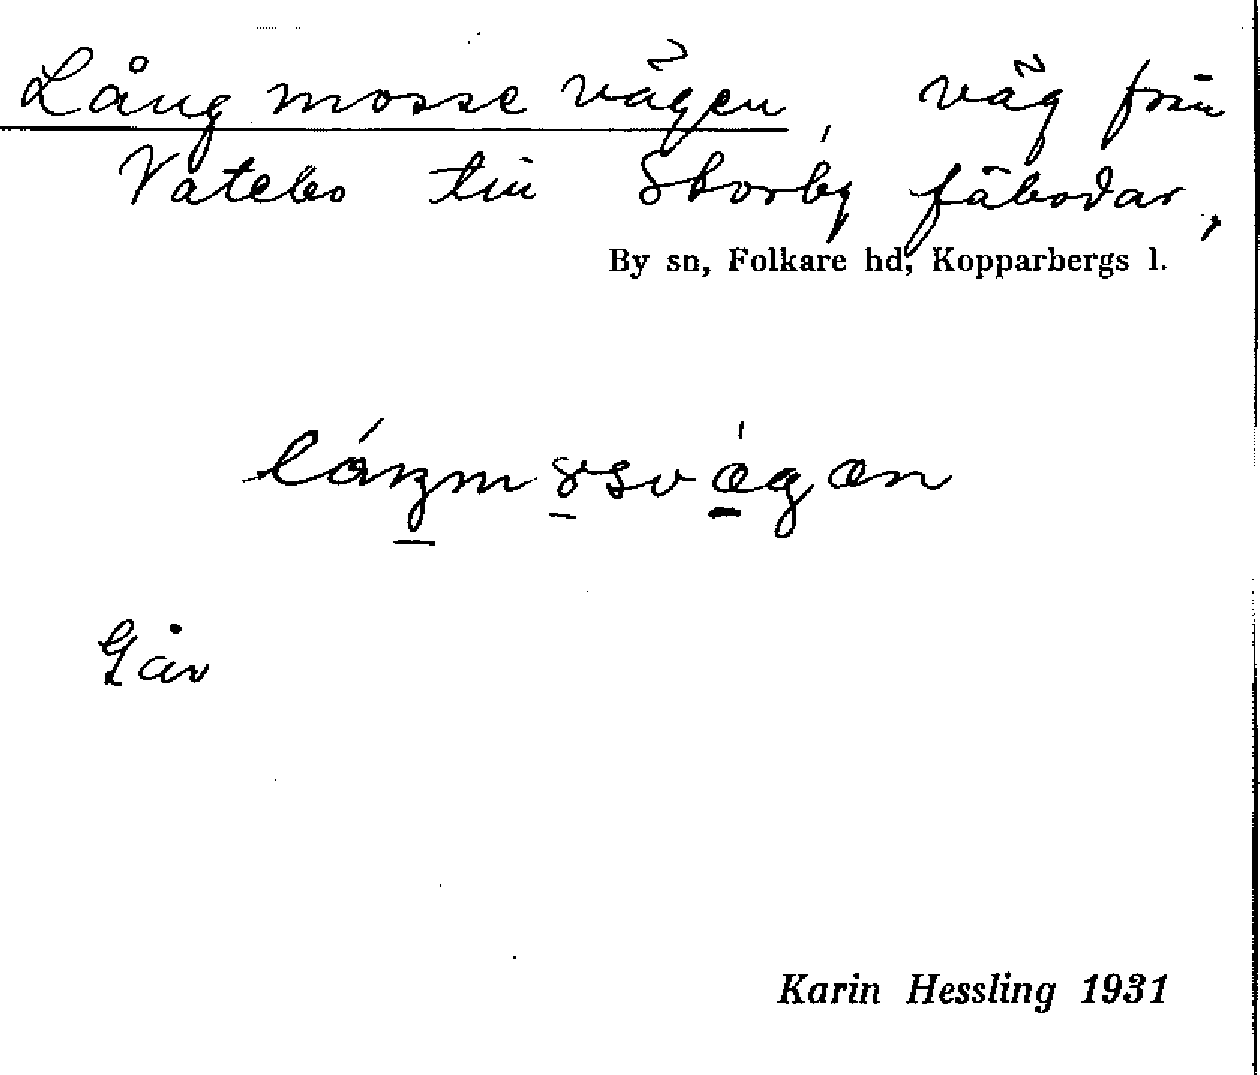 Långmossevägen, väg från
Vatebo till Storby fäbodar,
By sn, Folkare hd, Kopparbergs l.
Går
Karin Hessling 1931